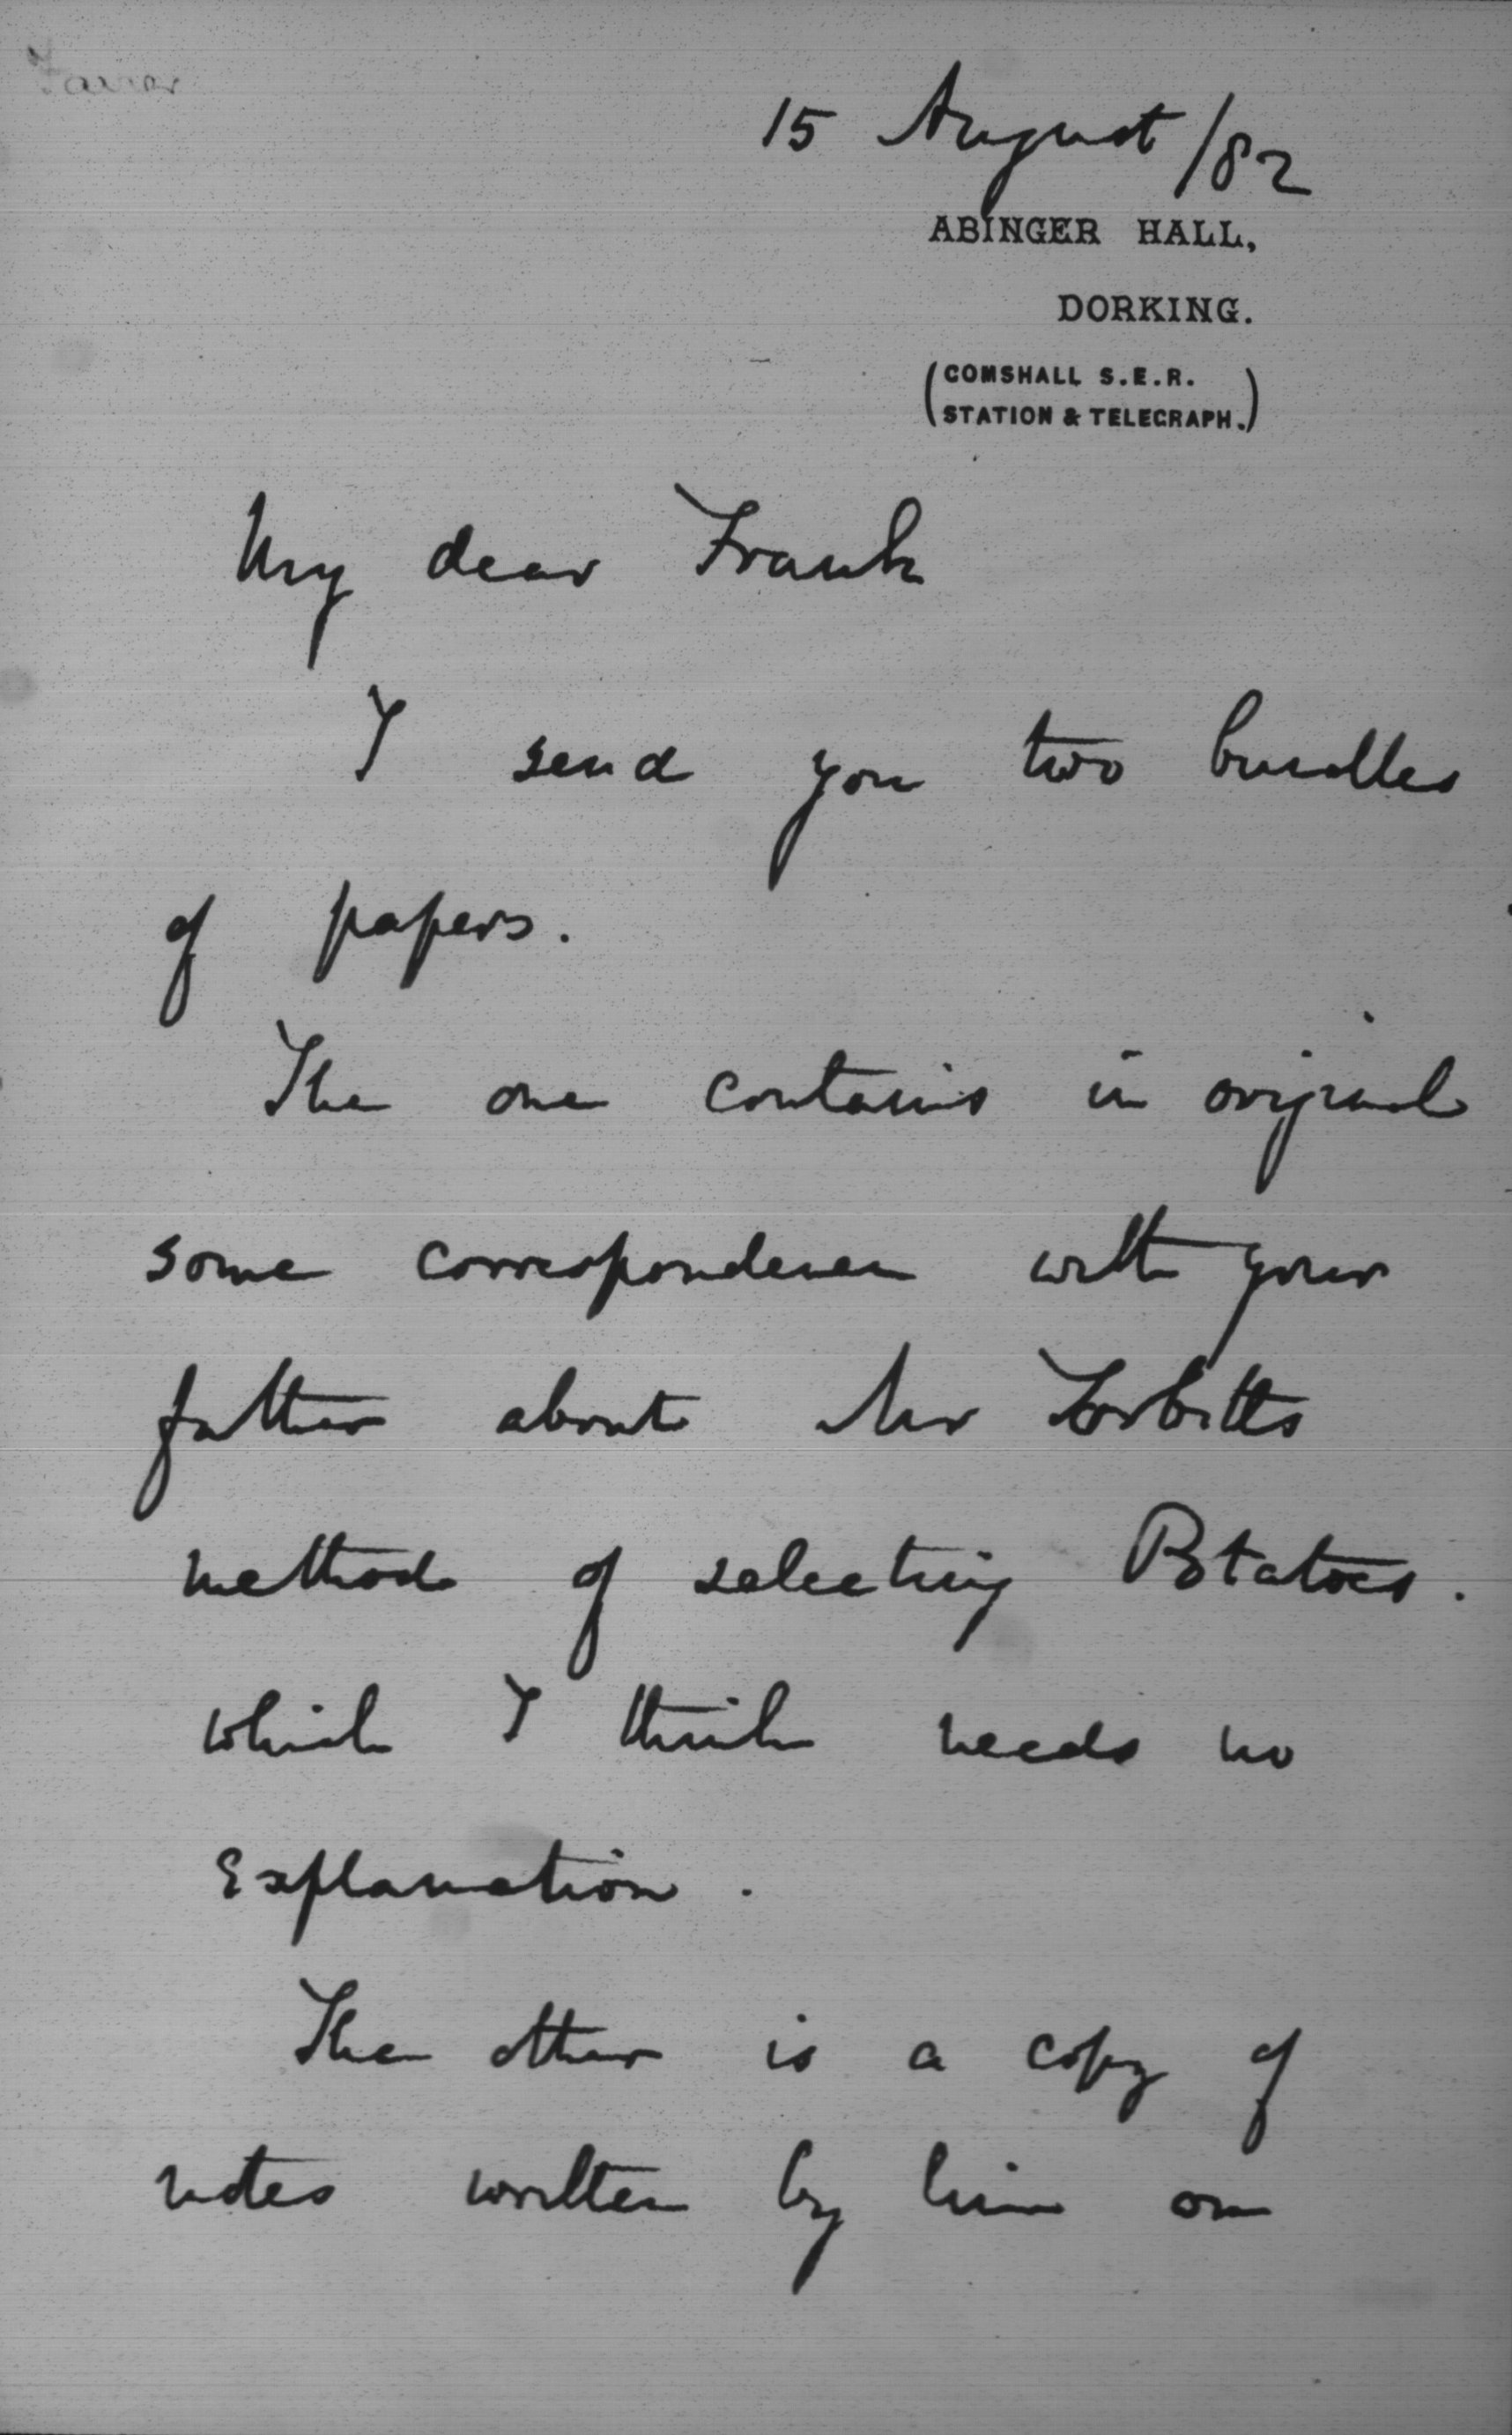 Farrer
15 August /82
ABINGER HALL,
DORKING.
(COMSHALL S.E.R.
STATION & TELEGRAPH.)
My dear Frank
I send you two bundles
of papers.
The one contains in original
some correspondence with your
father about Mr Torbitts
method of selecting Potatoes.
which I think needs no
Explanation.
The other is a copy of
notes written by him on